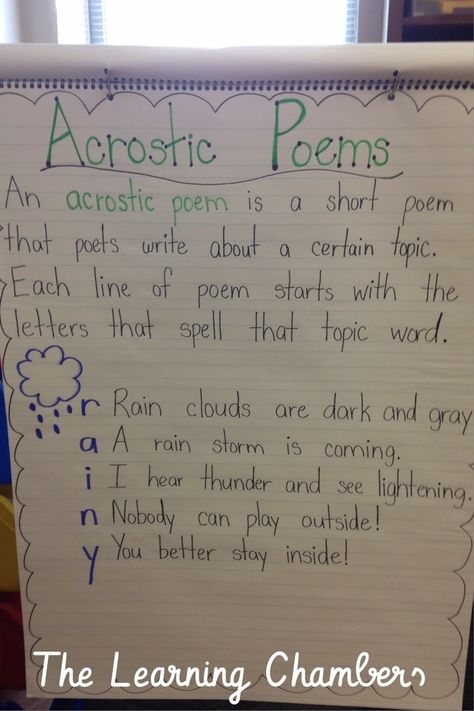 Acrostic Poems
An acrostic poem is a short poem
that poets write about a certain topic.
Each line of poem starts with the
letters that spell that topic word.
r Rain clouds are dark and gray
a A rain storm is coming.
i I hear thunder and see lightening.
n Nobody can play outside!
y You better stay inside!
The Learning Chambers